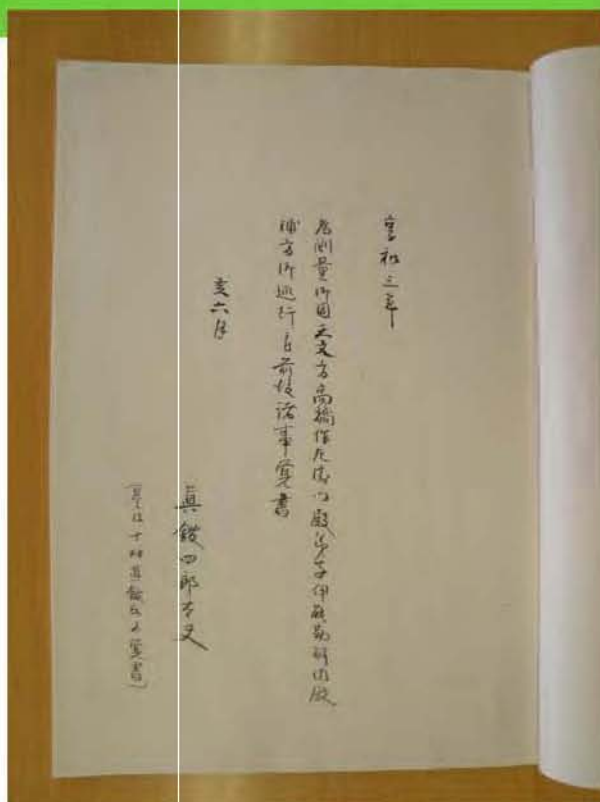 享和三年
為測量御国天文方高橋作左衛門殿弟子伊能勘解由殿
浦方御巡行ニ付前後諸事覚書
亥六月
真鍋四郎太夫